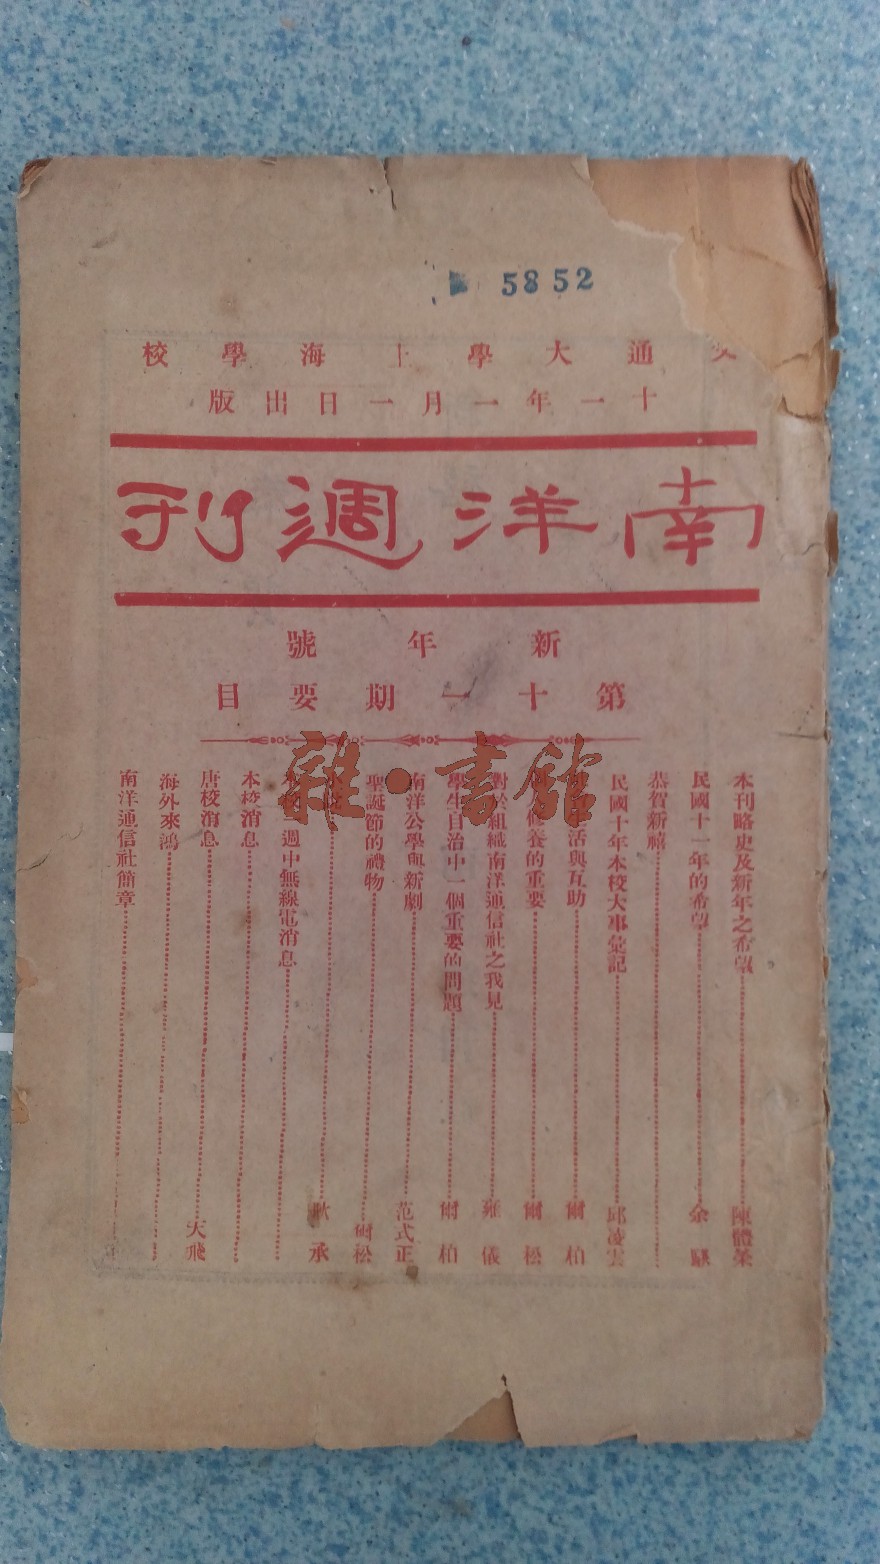 5852
通大學上海學校
十一年一月一日出版
南洋週刊
新年號
第十一期要目
本刊略史及新年之希望 陳體榮
民國十一年的希望 余
恭賀新禧
民國十年本校大事彙記 邱凌雲
活與互助 爾柏
修養的重要 爾松
對於組織南洋通信社之我見 雍儀
學生自治中一個重要的問題 爾柏
南洋公學與新劇 范式正
聖誕節的禮物 爾松
承
週中無線電消息
本校消息
唐校消息 天飛
海外來鴻
南洋通信社簡章
雜·書館